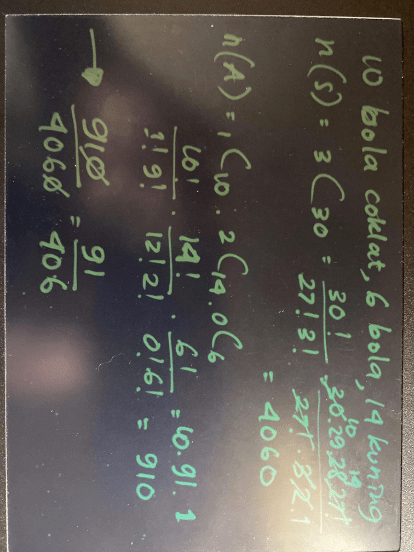 10 bola coklat, 6 bola, 14 kuning
n(S) = 3C30 = 30! / 27! 3! = 30.29.28.27! / 27!.3.2.1
10 14
= 4060
n(A) = 1C10 . 2C14 . 0C6
10! / 1! 9! . 14! / 12! 2! . 6! / 0! 6! = 10.91.1
= 910
→ 910 / 4060 = 91 / 406